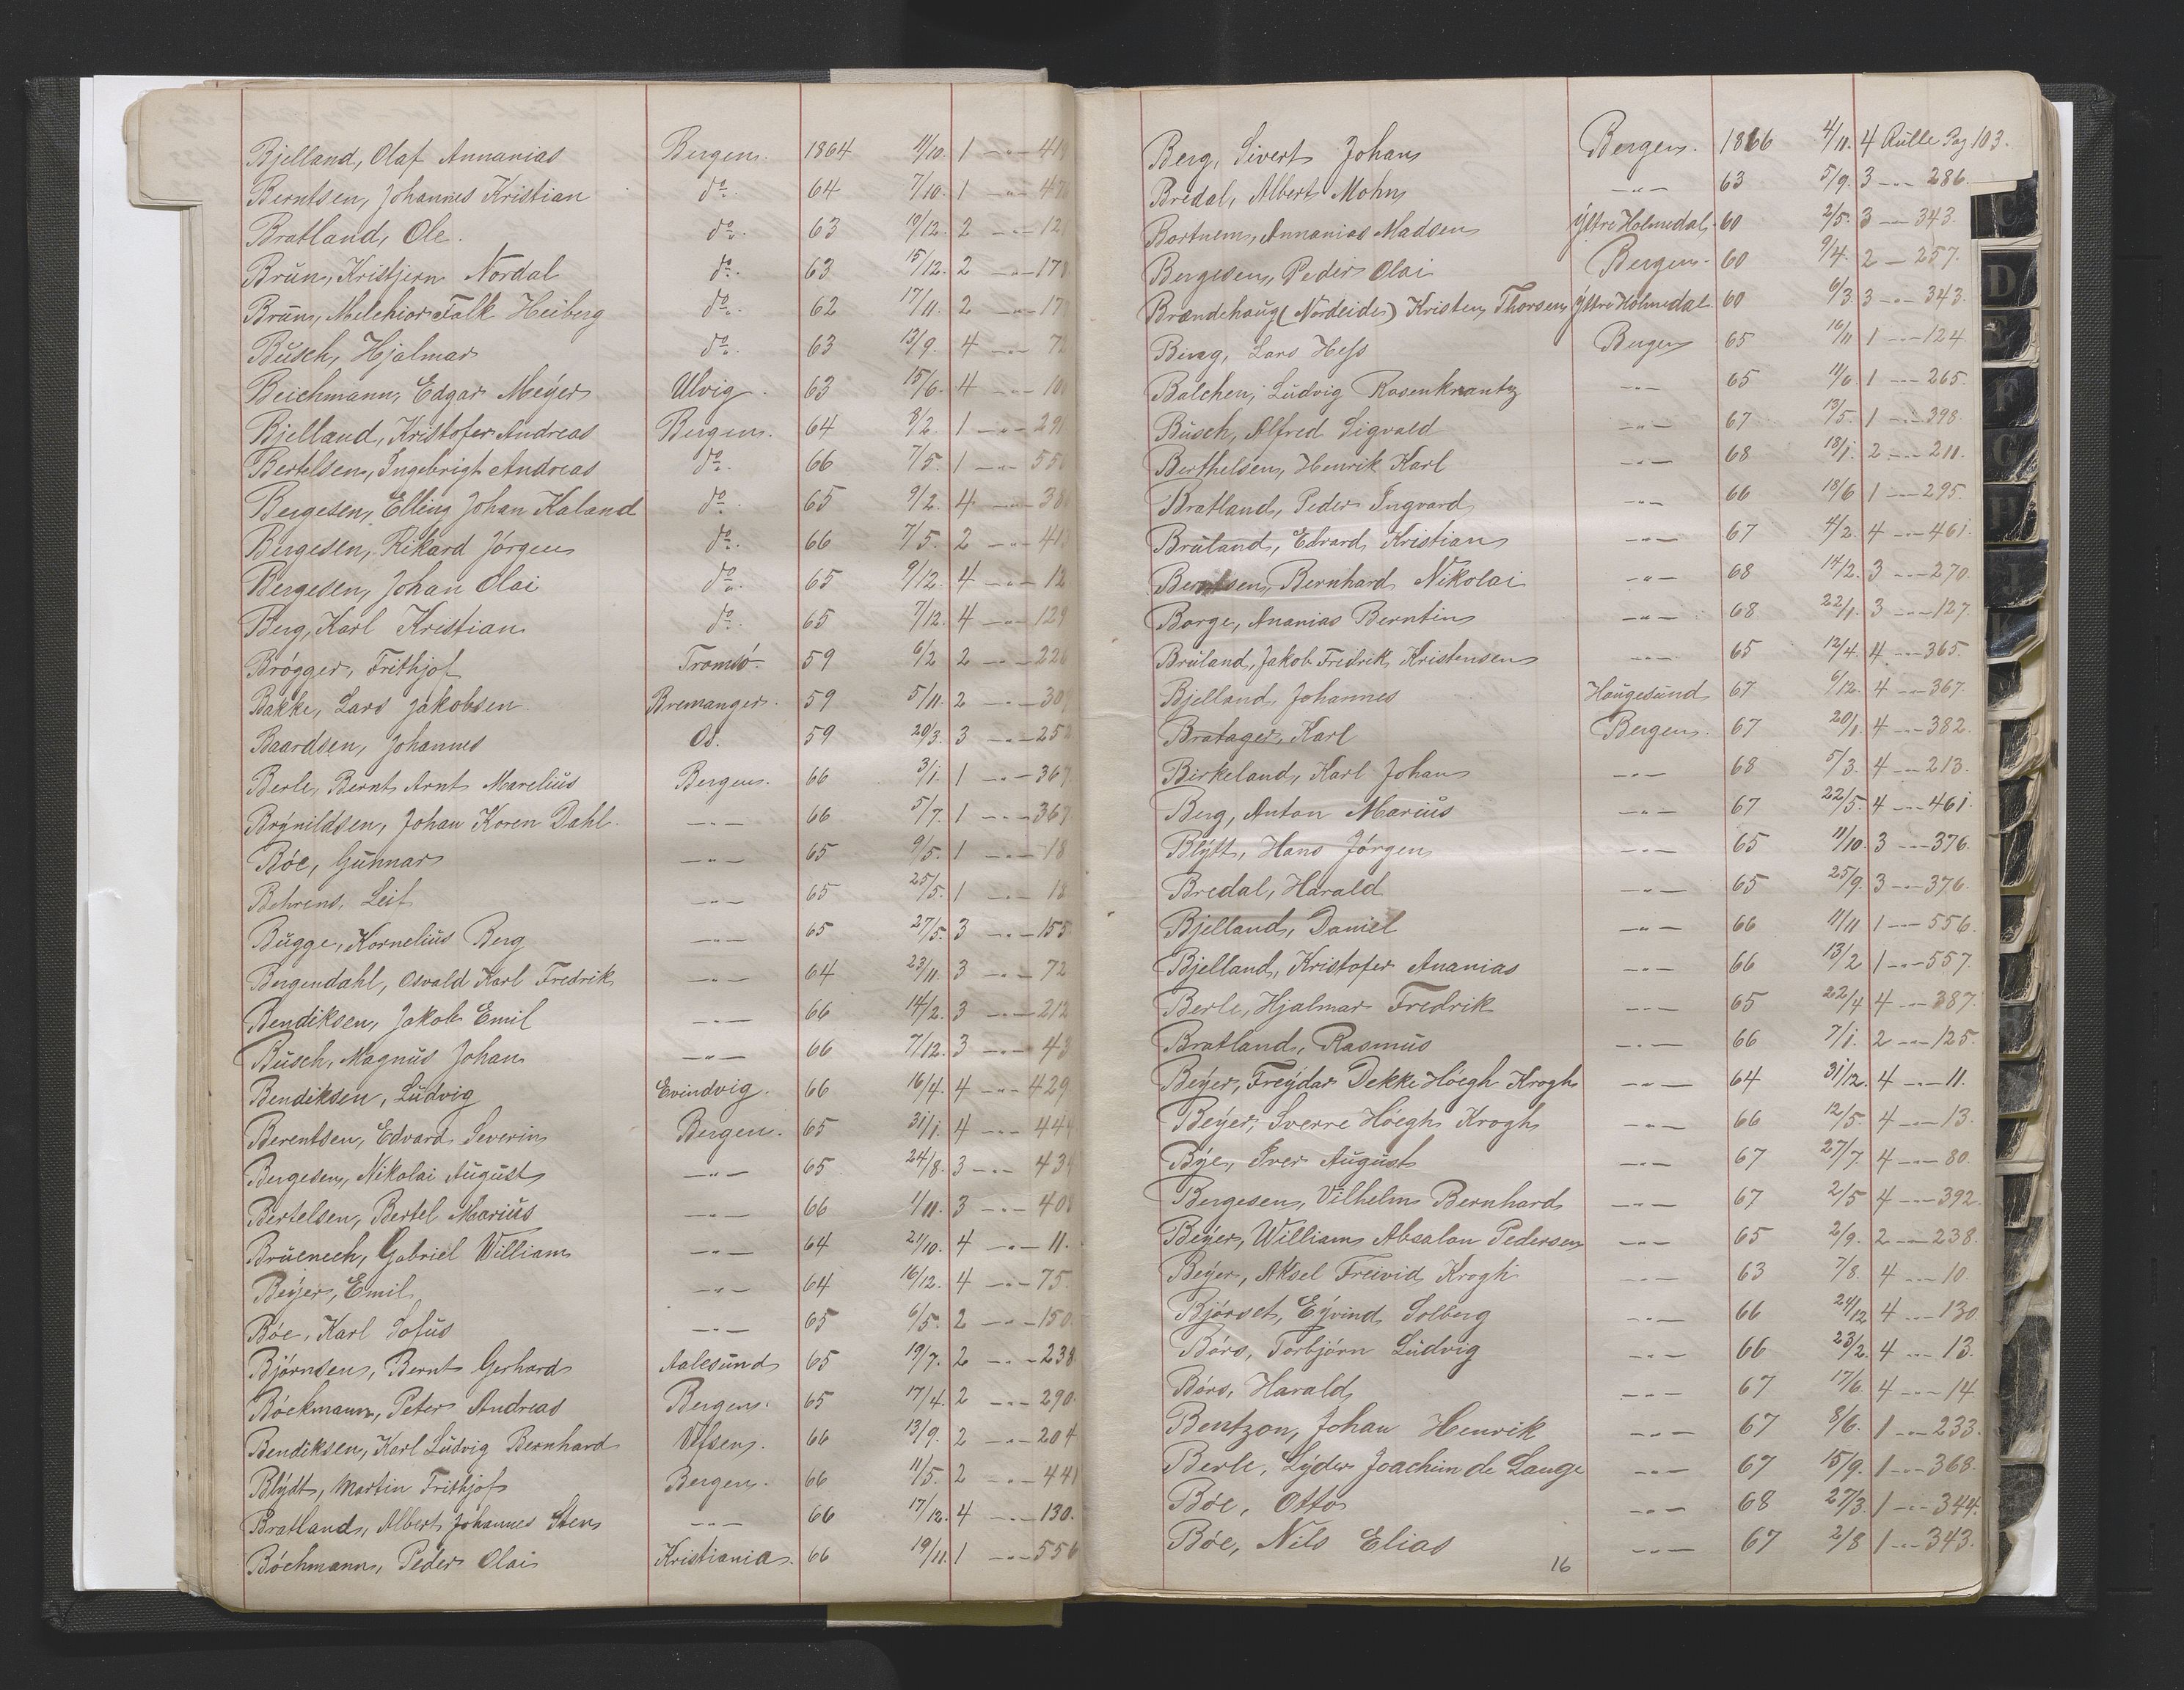 Bjelland, Olaf Annanias Bergen. 1864 11/10. 1 -"-
Berntsen, Johannes Kristian do. 64 7/10. 1 -"-
Bratland, Ole. do. 63 19/12. 2 -"-
Brun, Kristjern Nordal do. 63 15/12. 2 -"-
Brun, Melchior Falk Heiberg do. 62 17/11. 2 -"-
Busch, Hjalmar do. 63 13/9. 4 -"-
Beichmann, Edgar Meyer Ulvig. 63 15/6. 4 -"-
Bjelland, Kristofer Andreas Bergen. 64 8/2 1 -"-
Bertelsen, Ingebrigt Andreas do. 66 7/5. 1 -"-
Bergesen, Elling Johan Kaland do. 65 9/2. 4 -"-
Bergesen, Rikard Jörgen do. 66 7/5. 2 -"-
Bergesen, Johan Olai do. 65 9/12. 4 -"- 12
Berg, Karl Kristian do. 65 7/12. 4 -"- 129
Brögger, Frithjof Tromsö. 59 6/2 2 -"- 226
Bakke, Lars Jakobsen Bremanger. 59 5/11. 2 -"-
Baardsen, Johannes Os. 59 20/3. 3 -"-
Berle, Bernt Arnt Marelius Bergen. 66 3/1. 1 -"- 367
Brynildsen, Johan Koren Dahl. -"- 66 5/7. 1 -"- 367
Böe, Gunnar -"- 65 9/5. 1 -"- 18
Behrens, Leif -"- 65 25/5. 1 -"- 18
Bugge, Kornelius Berg -"- 65 27/5. 3 -"- 155
Bergendahl, Osvald Karl Fredrik -"- 64 23/11. 3 -"- 72
Bendiksen, Jakob Emil -"- 66 14/2. 3 -"- 212
Busch, Magnus Johan -"- 66 7/12. 3 -"- 43
Bendiksen, Ludvig Evindvig. 66 16/4. 4 -"- 429
Berentsen, Edvard Severin Bergen. 65 31/1. 4 -"- 444
Bergesen, Nikolai August -"- 65 24/8. 3 -"- 434
Bertelsen, Bertel Marius -"- 66 1/11. 3 -"- 408
Bruenech, Gabriel William -"- 64 21/10. 4 -"- 11.
Beyer, Emil -"- 64 16/12. 4 -"- 75.
Böe, Karl Sofus -"- 65 6/5. 2 -"- 150.
Björnsen, Bernt Gerhard Aalesund 65 19/7. 2 -"- 238
Böckmann, Peter Andreas Bergen. 65 17/4. 2 -"- 290.
Bendiksen, Karl Ludvig Bernhard Vefsen. 66 13/9. 2 -"- 204
Blydt, Martin Frithjof Bergen. 66 11/5. 2 -"- 441
Bratland, Albert Johannes Sten -"- 66 17/12. 4 -"- 130.
Böchmann, Peder Olai Kristiania. 66 19/11. 1 -"- 556
Berg, Sivert Johan Bergen. 1866 4/11. 4 Rulle Pag 103.
Bredal, Albert Mohn -"- 63 5/9. 3 -"- 286.
Bortnem, Annanias Madsen Ytre Holmedal. 60 2/5. 3 -"- 343.
Bergesen, Peder Olai Bergen. 60 9/4. 2 - 257.
Brandehaug (Nordeide) Kristen Thorsen Ytre Holmedal. 60 6/3. 3 -"- 343.
Berg, Lars Hess Bergen 65 16/11 1 -"- 124
Balchen, Ludvig Rosenkrantz -"- 65 11/6. 1 -"- 265.
Busch, Alfred Sigvald -"- 67 13/5. 1 -"- 398.
Berthelsen, Henrik Karl -"- 68 18/1. 2 -"- 211.
Bratland, Peder Ingvard -"- 66 18/6 1 -"- 295.
Bruland, Edvard Kristian -"- 67 4/2. 4 -"- 461.
Berntsen, Bernhard Nikolai -"- 68 14/2. 3 -"- 270.
Borge, Ananias Berntin -"- 68 22/1. 3 -"- 127.
Bruland, Jakob Fredrik Kristensen -"- 65 12/4. 4 -"- 365.
Bjelland, Johannes Haugesund 67 6/12. 4 -"- 367.
Bratager, Karl Bergen. 67 20/1. 4 -"- 382.
Birkeland, Karl Johan -"- 68 5/3. 4 -"- 213.
Berg, Anton Marius -"- 67 22/5. 4 -"- 461.
Blytt, Hans Jörgen -"- 65 11/10. 3 -"- 376.
Bredal, Harald -"- 65 25/9. 3 -"- 376.
Bjelland, Daniel -"- 66 11/11 1 -"- 556.
Bjelland, Kristofer Ananias -"- 66 13/2 1 -"- 557.
Berle, Hjalmar Fredrik -"- 65 22/4 4 -"- 387.
Bratland, Rasmus -"- 66 7/1. 2 -"- 125.
Beyer, Freydar Dekke Höegh Krogh -"- 64 31/12. 4 -"- 11.
Beyer, Sverre Höegh Krogh -"- 66 12/5. 4 -"- 13.
Bye, Iver August -"- 67 27/7. 4 -"- 80.
Bergesen, Vilhelm Bernhard -"- 67 2/5 4 -"- 392.
Beyer, William Absalon Pedersen -"- 65 2/9. 2 -"- 238.
Beyer, Aksel Freivid Krogh -"- 63 7/8. 4 -"- 10.
Björset, Eyvind Solberg -"- 66 24/12 4 -"- 130
Börs, Torbjörn Ludvig -"- 66 23/2. 4 -"- 13.
Börs, Harald -"- 67 17/6. 4 -"- 14.
Bentzon, Johan Henrik -"- 67 8/6. 1 -"- 233.
Berle, Lyder Joachim de Lange -"- 67 15/9. 1 -"- 368.
Böe, Otto -"- 68 27/3. 1 -"- 344.
Böe, Nils Elias -"- 67 2/8 1 -"- 343.
16
C
D
E
F
G
H
J
K